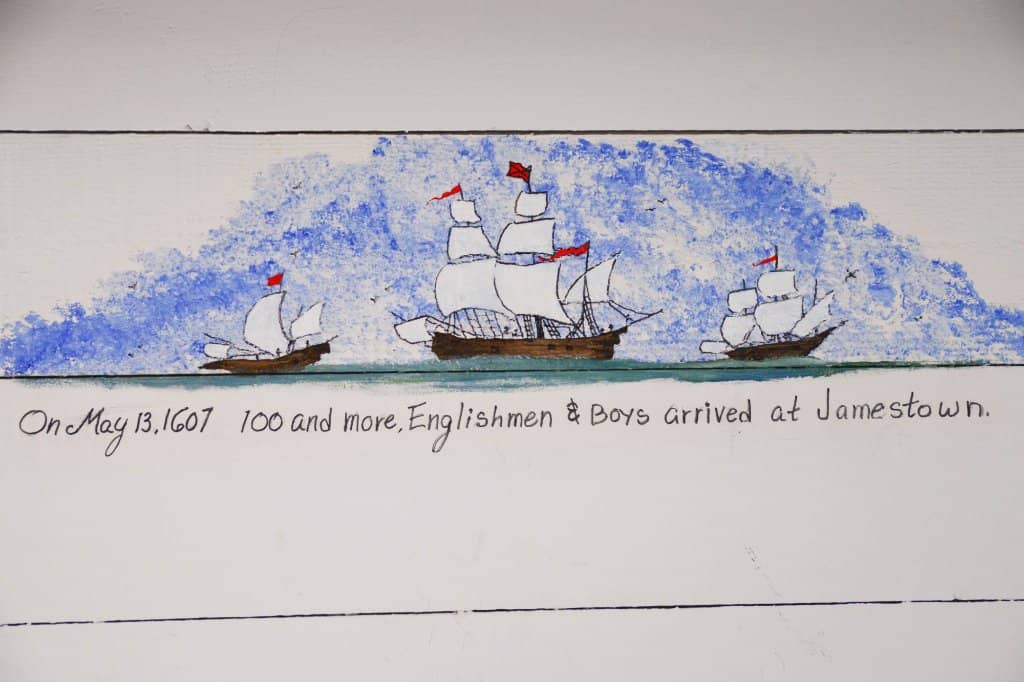 On May 13, 1607 100 and more, Englishmen & Boys arrived at Jamestown.